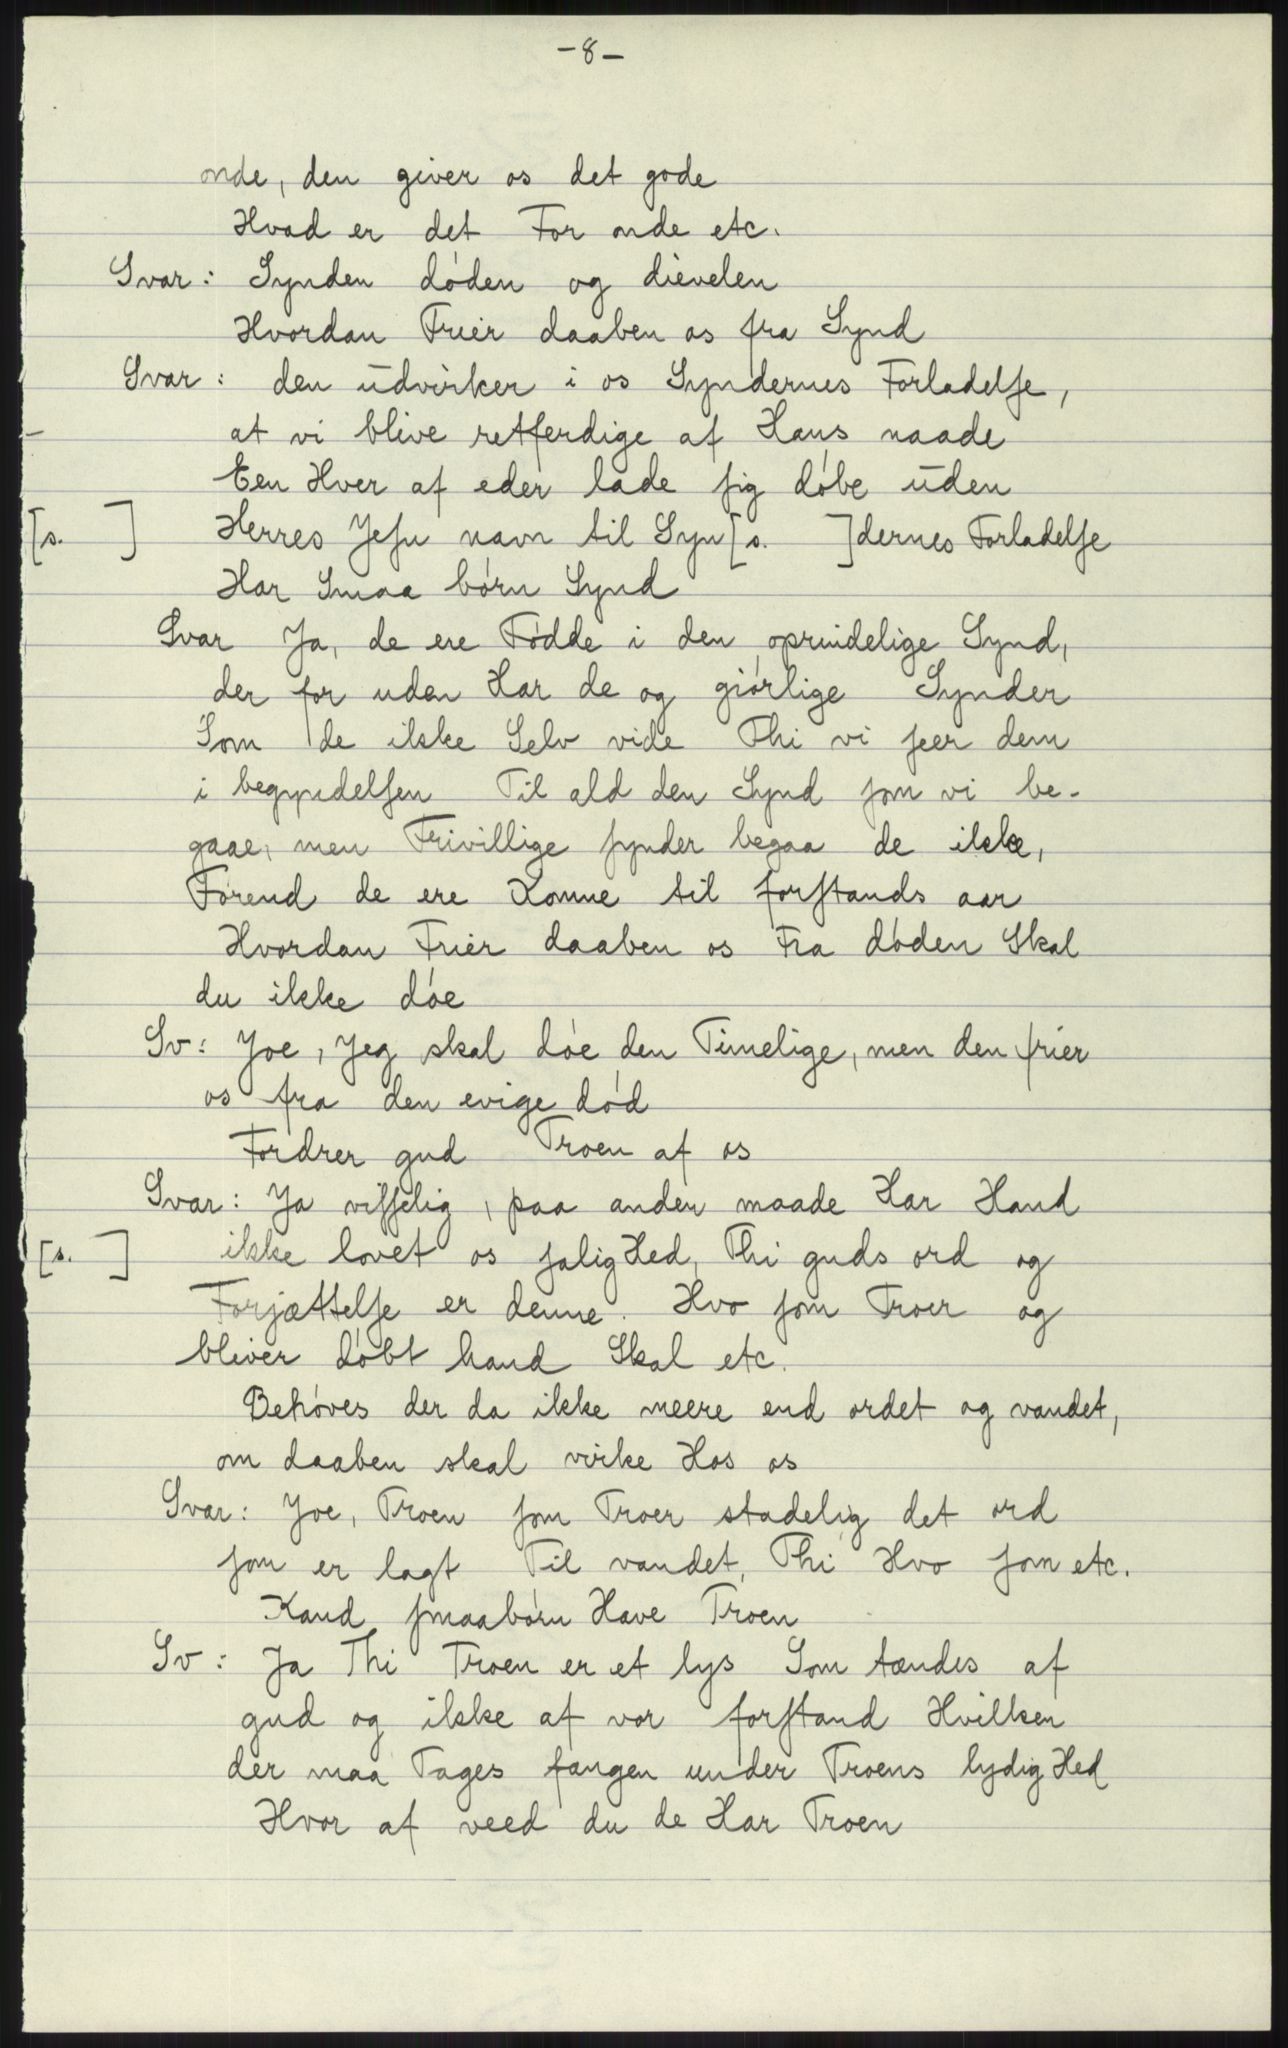 -8-
onde, den giver os det gode
Hvad er det For onde etc.
Svar: Synden døden og dievelen
Hvordan Frier daaben os fra Synd
Svar: den ūdvirker i os Syndernes Forladelſe,
- at vi blive retferdige af Hans naade
Een Hver af eder lade ſig døbe ūden
[s. ] Herres Jeſu navn til Syn[s. ]dernes Forladelſe
Har Smaa børn Synd
Svar Ja, de ere Fødde i den oprindelige Synd,
der for uden Har de og giørlige Synder
Som de ikke Selv vide Thi vi ſeer dem
i begyndelſen Til ald den Synd ſom vi be-
gaae, men Frivillige ſynder begaa de ikke,
Førend de ere Komne til forſtands aar
Hvordan Frier daaben os Fra døden Skal
du ikke døe
Sv: Joe, Jeg skal døe den Timelige, men den frier
os fra den evige død
Fordrer gud Troen af os
Svar: Ja viſſelig, paa anden maade Har Hand
[s. ] ikke lovet os ſaligHed, Thi guds ord og
Forjættelſe er denne. Hvo ſom Troer og
bliver døbt hand Skal etc.
Behøves der da ikke meere end ordet og vandet,
om daaben skal virke Hos os
Svar: Joe, Troen ſom Troer stadelig det ord
ſom er lagt Til vandet, Thi Hvo ſom etc.
Kand ſmaabørn Have Troen
Sv: Ja Thi Troen er et lys Som tændes af
gud og ikke af vor forſtand Hvilken
der maa Tages fangen under Troens lydigHed
Hvor af veed du de Har Troen